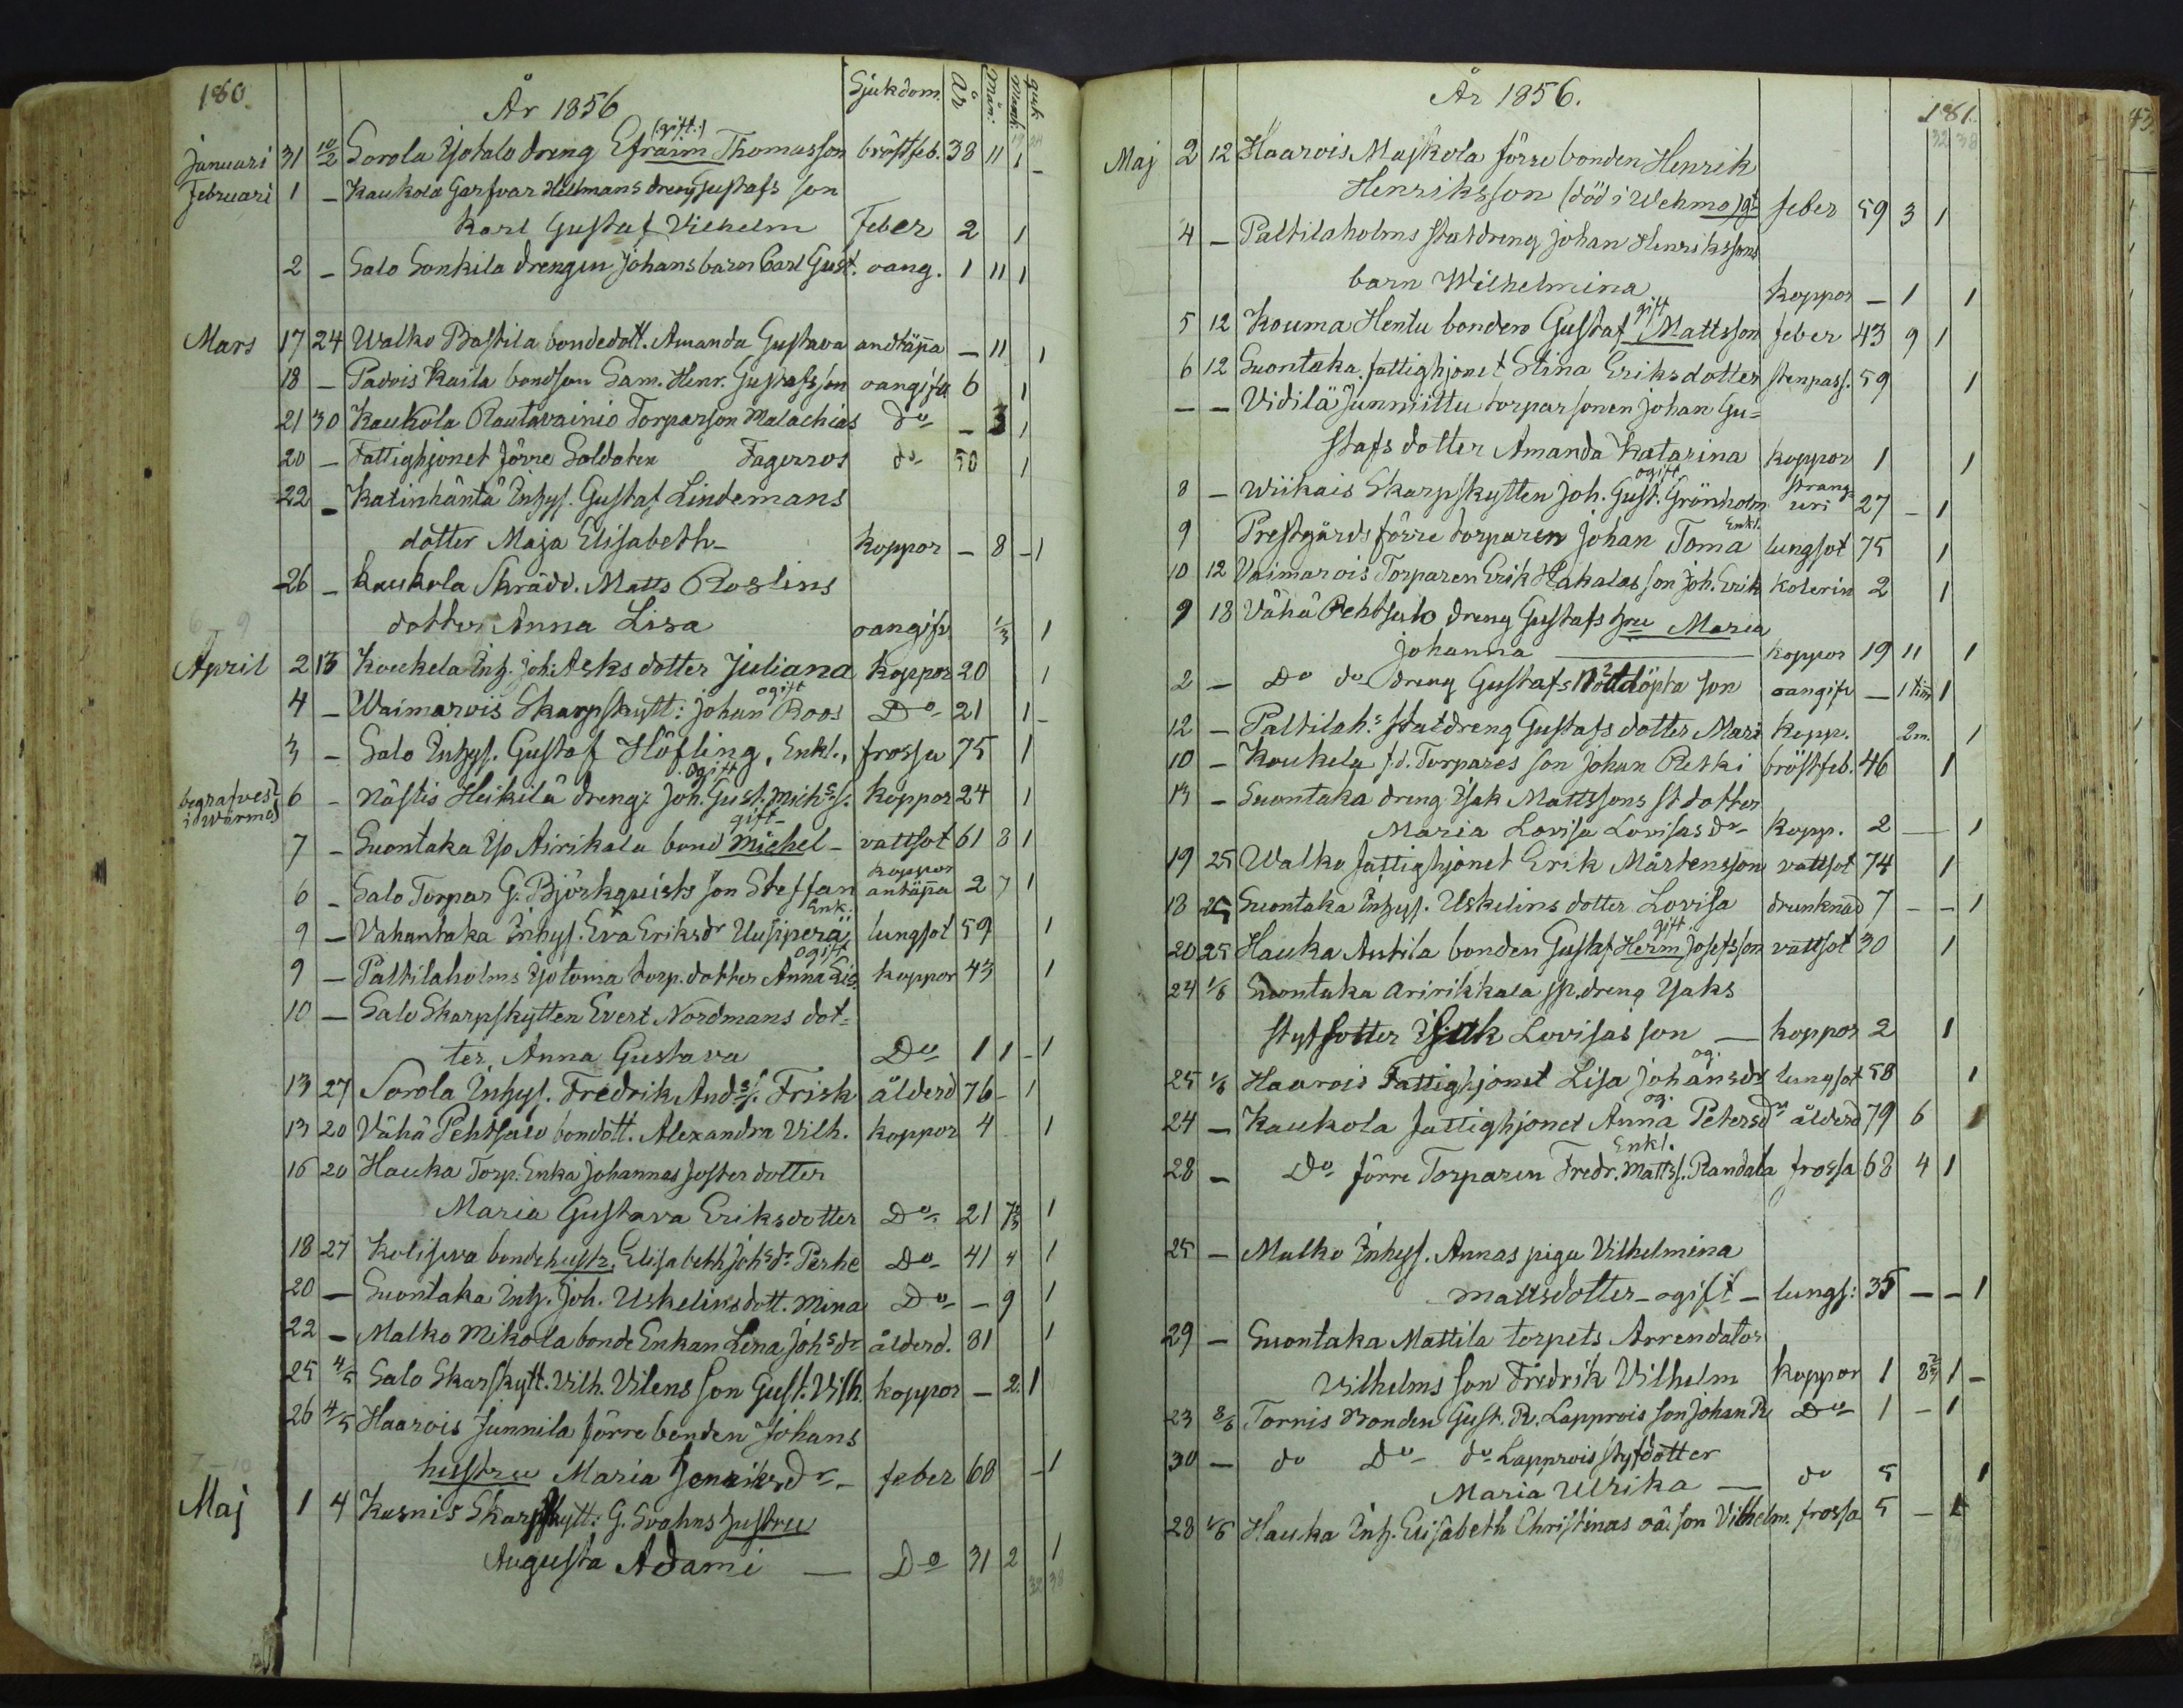 180.
År 1856
Sjukdom. År Mån: Mank: Quk:
19 24
Januari 31 10/2 Sorola Yotalo dreng Efraim (gift.) Thomasson bröstfeb. 38 11 1 -
Februari 1 - Kaukola Garfvar Hellmans dreng Gustafs son
Karl Gustaf Vilhelm Feber 2 1
2 - Salo Sonkila drengen Johans barn Carl Gust. oang. 1 11 1
Mars 17 24 Walko Bastila bondedott. Amanda Gustava andtäpa - 11 1
18 - Padvois Kaila bondson Sam. Henr. Gustafsson oangifv 6 1
21 30 Kaukola Rautavainio Torparson Malachias do - 3 1
20 - Fattighjonet förre Soldaten Fagerros do 50 1
22 - Katinhäntä Inhys. Gustaf Lindemans
dotter Maja Elisabeth - koppor - 8 - 1
26 - Kaukola Skrädd. Matts Roslins
dotter Anna Lisa oangifv 1/3 1
April 2 13 Koukela Inh. Joh: Asks dotter Juliana koppor 20 1
4 - Waimarvis Skarpskytt: Johan ogift Roos Do 21 1 -
3 - Salo Inhys. Gustaf Höfling, Enkl., frossa 75 1
begrafves i Wärmo 6 - Nästis Heikilä dreng: Joh. Gust. Mich:s. ogift koppor 24 1
7 - Suontaka Yso Airikala bond Michel gift - vattsot 61 8 1
6 - Salo Torpar G. Björkqvists son Steffan koppor antäpa 2 7 1
9 - Vahantaka Inhys. Eva Eriksdr Uusiperä Enk. lungsot 59 1
9 - Paltilaholms Yotoma torp. dotter Anna Lis. ogift koppor 43 1
10 - Salo Skarpskytten Evert Nordmans dot=
ter, Anna Gustava Do 1 1 - 1
13 27 Sorola Inhys. Fredrik And:s. Frisk ålderd 76 - 1
13 20 Vähä Pehtsalo bondott. Alexandra Vilh. koppor 4 1
16 20 Hauka Torp. Enka Johannas foster dotter
Maria Gustava Eriksdotter Do 21 7 2/3 1
18 27 Koliseva bondehustr. Elisabeth Johsdr Perhe Do 41 4 1
20 - Suontaka Inh. Joh. Uskelins dott. Mina Do - 9 1
22 - Malko Mikola bonde Enkan Lena Johsdr ålderd. 81 1
25 4/5 Salo Skarskytt. Vilh. Vilens son Gust. Vilh. koppor - 2. 1
26 4/5 Haarois Junnila förre bonden Johans
hustru Maria Henriksdr - feber 68 - 1
7 - 10
Maj 1 4 Kusnis Skarpskytt: G. Svahns hustru
Augusta Adami - Do 31 2 1
32 38
År 1856.
181.
32 38
Maj 2 12 Haarois Maskola förre bonden Henrik
Henriksson (död i Wehmo) gt feber 59 3 1
4 - Paltilaholms statdreng Johan Henrikssons
barn Wilhelmina koppor - 1 1
5 12 Kouma Hentu bonden Gustaf gift Mattsson feber 43 9 1
6 12 Suontaka fattighjonet Stina Eriksdotter stenpass. 59 1
- - Vidilä Junniittu torparsonen Johan Gu=
stafs dotter Amanda Katarina koppor 1 1
8 - Wiikais Skarpskytten Joh. Gust. ogift Grönholm strang= uri 27 - 1
9 Prestgårds förre torparen Johan Toma Enkl. lungsot 75 1
10 12 Vaimarois Torparen Erik Hakalas son Joh. Erik kolerin 2 1
9 18 Vähä Pehtsalo dreng Gustafs hru Maria
Johanna koppor 19 11 1
2 - Do do dreng Gustafs Nöddöpta son oangifv - 1 tim 1
12 - Paltilah:s statdreng Gustafs dotter Mari kopp. 2 m. 1
10 - Koukela f.d. Torpares son Johan Retki bröstfeb. 46 1
13 - Suontaka dreng Isak Mattssons st dotter
Maria Lovisa Lovisas dr kopp. 2 - 1
19 25 Walko fattighjonet Erik Mårtensson vattsot 74 1
18 25 Suontaka Inhys. Uskelins dotter Lovisa drunknad 7 - - 1
20 25 Hauka Antila bonden Gustaf Herm gift. Josefsson vattsot 30 1
24 1/6 Suontaka Aririkkala sp. dreng Isaks
styfdotter Isak Lovisas son - koppor 2 1
25 1/6 Haarois Fattighjonet Lisa og. Johansdr lungsot 58 1
24 - Kaukola fattighjonet Anna og. Petersdr ålderd 79 6 1
28 - Do förre Torparen Fredr. Matts. Enkl. Randala frossa 68 4 1
25 - Malko Inhys. Annas piga Vilhelmina
Mattsdotter - ogift - lungs: 35 - - 1
29 - Suontaka Mattila torpets Arrendator
Vilhelms son Fredrik Vilhelm koppor 1 8 2/3 1 -
23 8/6 Tornis Bonden Gust. R. Lapprois son Johan R Do 1 - 1
30 - do Do do Lapprois styfdotter
Maria Ulrika - do 5 1
28 1/6 Hauka Inh. Elisabeth Christinas oä. son Vilhelm. frossa 5 - 1
43.